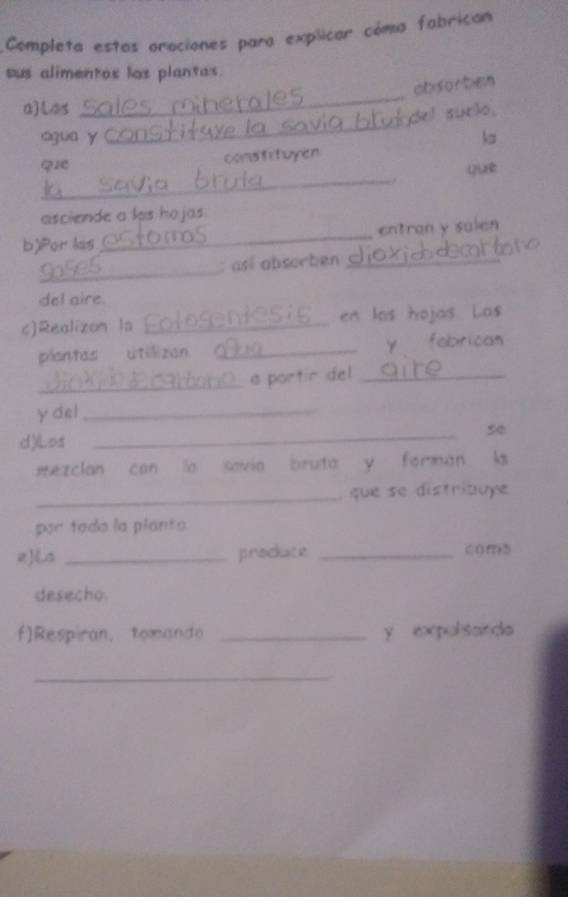 Completa estas oraciones para explicar cómo fabrican
sus alimentos las plantas.
a)Las sales minerales absorben
agua y constituye la savia bruta del suelo,
que constituyen la
la savia bruta que
asciende a las hojas.
b)Por las estomas entran y salen
gases ; así absorben dioxido de carbono
del aire.
c)Realizan la Fotosentesis en las hojas. Las
plantas utilizan agua y fabrican
dioxido de carbono a partir del aire
y del
d)Los se
mezclan con la savia bruta y forman la
, que se distribuye
por toda la planta.
e)La produce como
desecho.
f)Respiran, tomando y expulsando